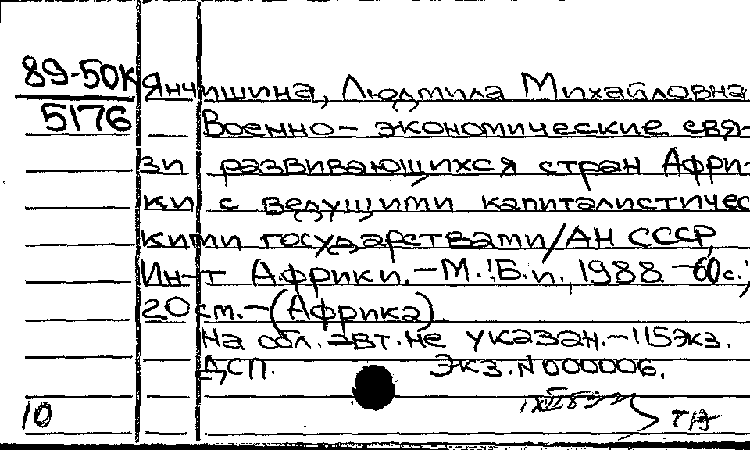 89-50К Янчишина, Людмила Михайловна
5176 Военно-экономические свя-
зи развивающихся стран Афри-
ки с ведущими капиталистичес
кими государствами/АН СССР,
Ин-т Африки.-М.:Б.и., 1988-60с.;
20 см.-(Африка)
На обл. авт. не указан.-115экз.
ДСП. Экз. N 000006.
10